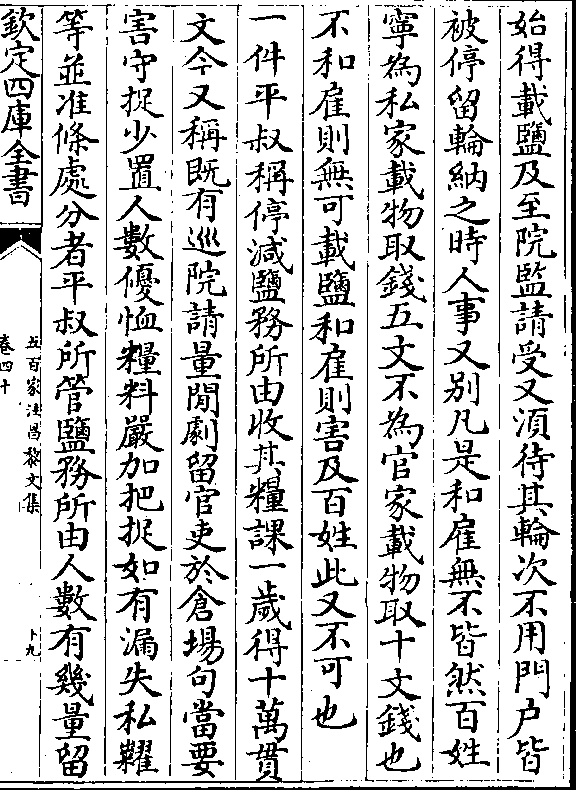 始得載鹽及至院監請受又湏待其輪次不用門户皆
被停留輪納之時人事又别凡是和雇無不皆然百姓
寧為私家載物取錢五文不為官家載物取十文錢也
不和雇則無可載鹽和雇則害及百姓此又不可也
一件平叔稱停減鹽務所由收其糧課一歲得十萬貫
文今又稱既有巡院請量閒劇留官吏於倉場勾當要
害守捉少置人數優恤糧料嚴加把捉如有漏失私糶
等並准條處分者平叔所管鹽務所由人數有幾量留
欽定四庫全書
五百家注昌黎文集
卷四十
十九